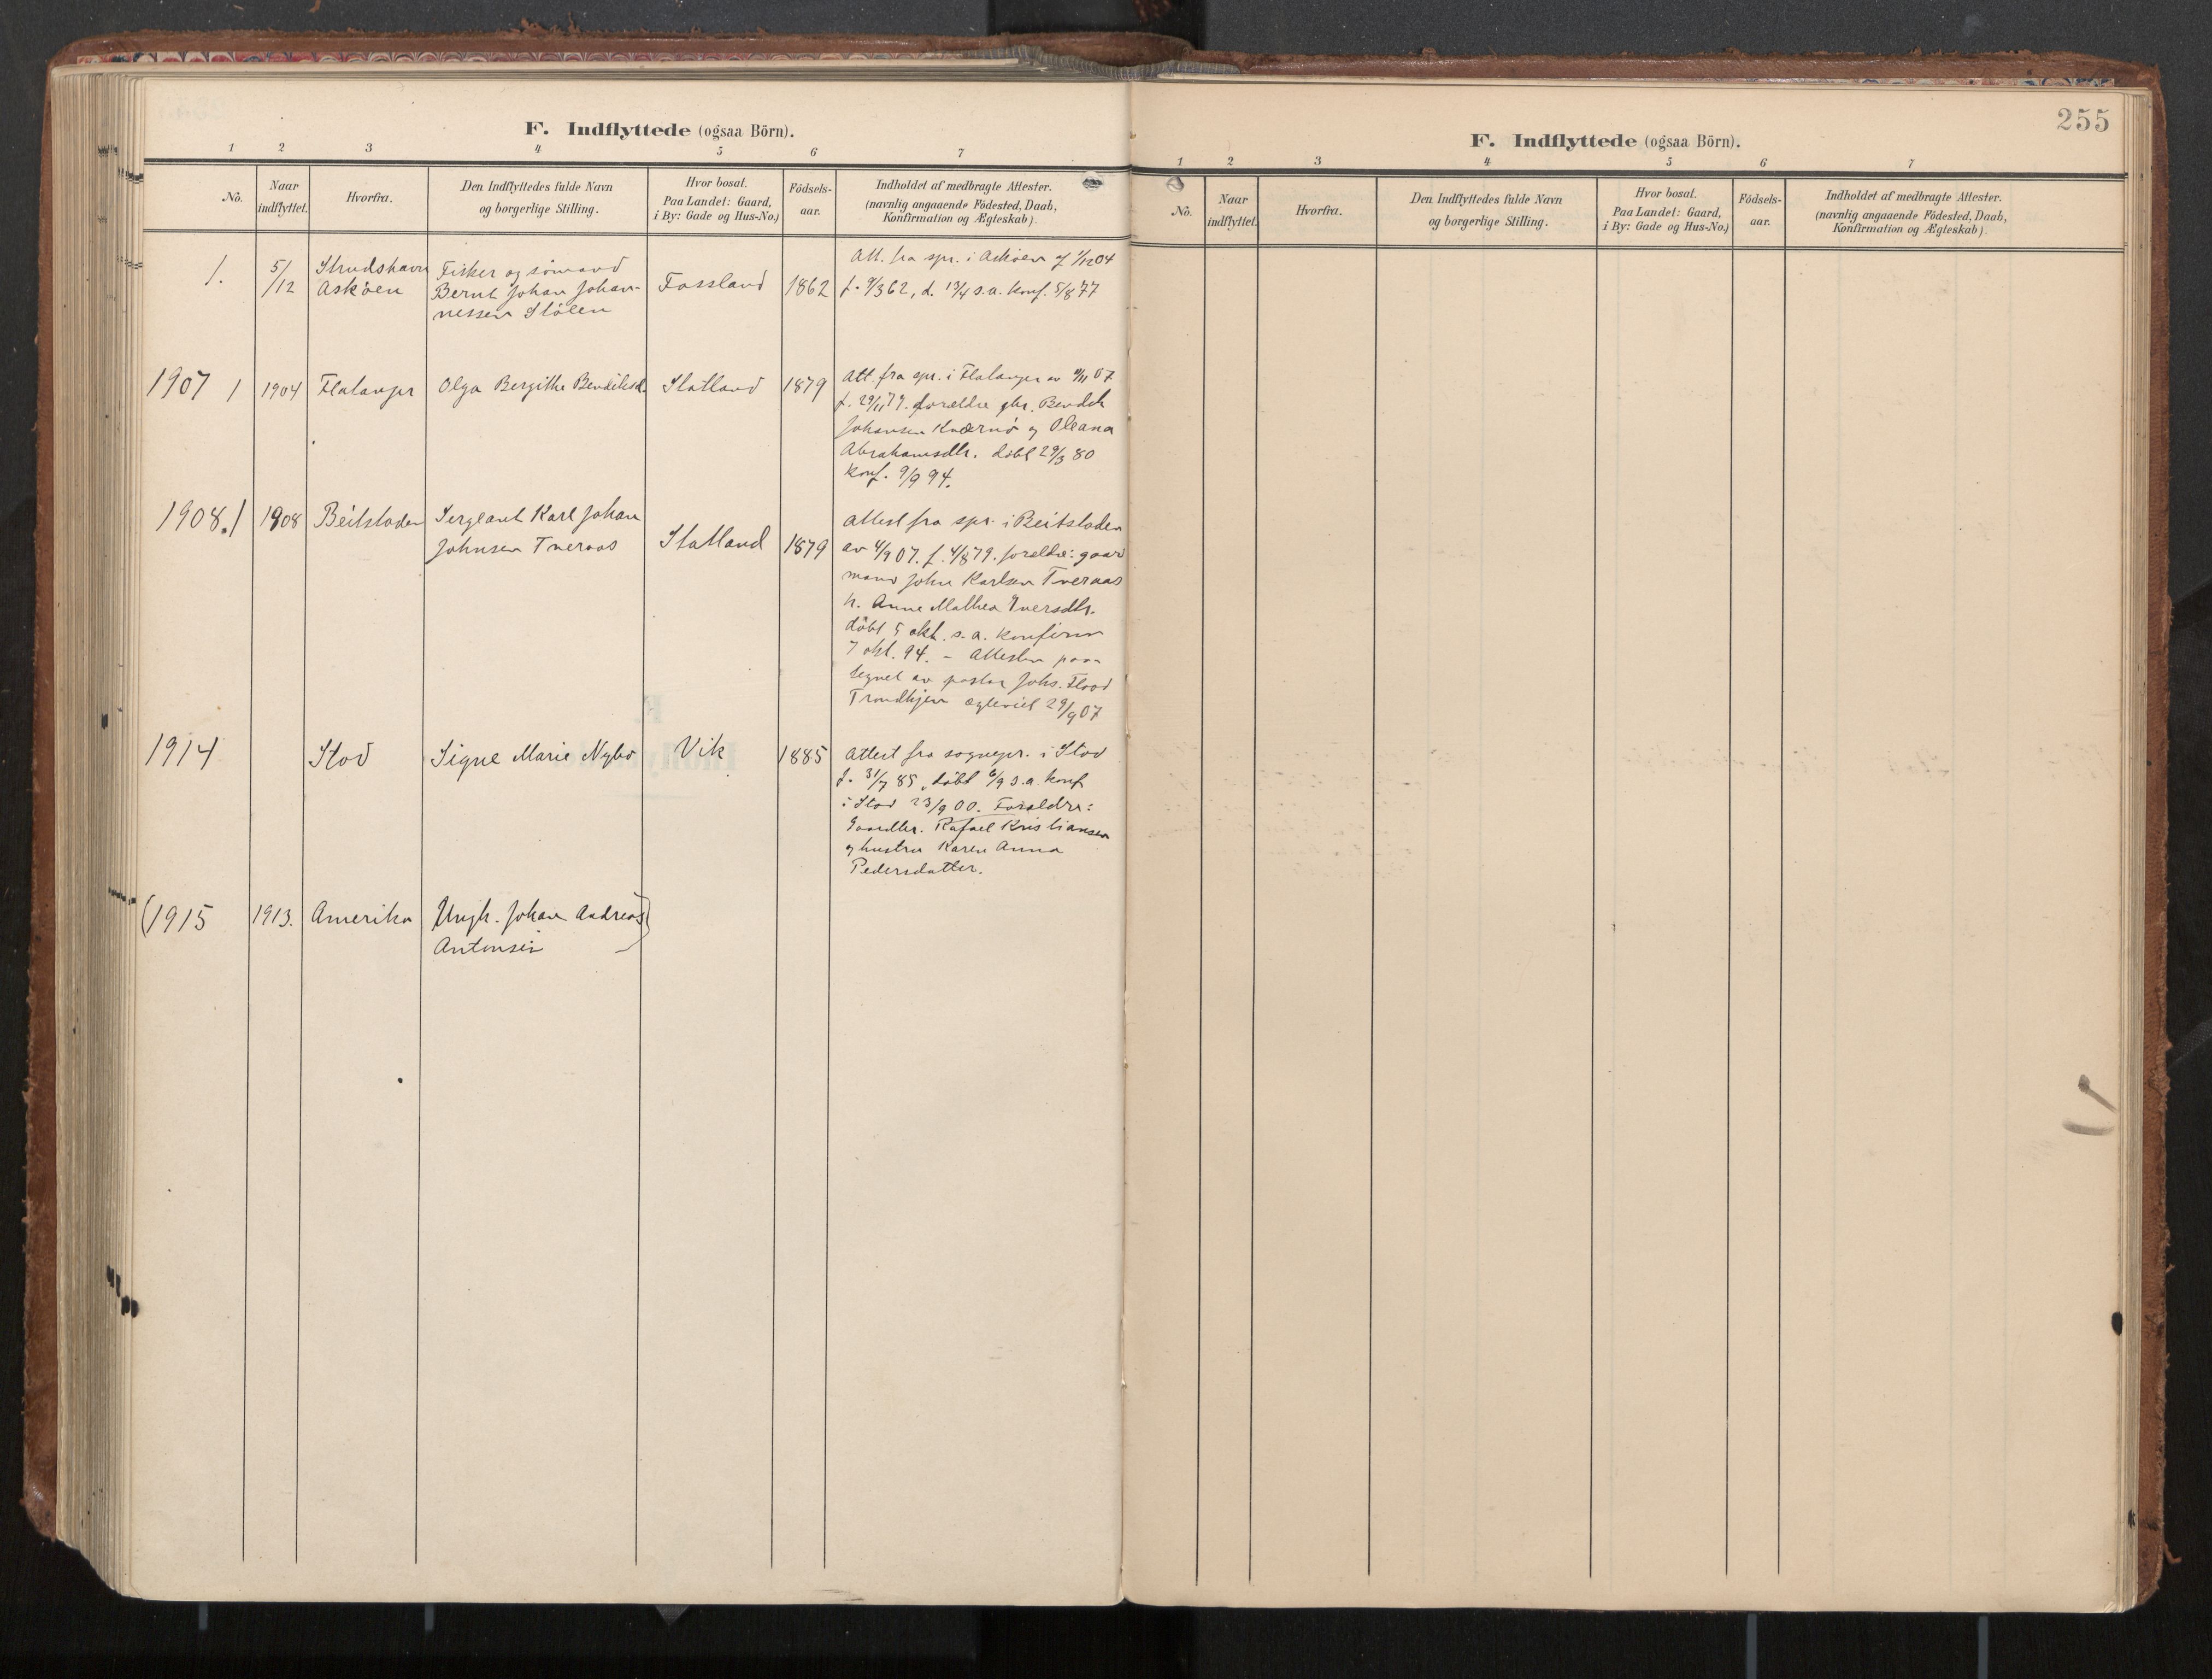 F. Indflyttede (ogsaa Börn).
1 2 3 4 5 6 7
No.
Naar indflyttet.
Hvorfra.
Den Indflyttedes fulde Navn
og borgerlige Stilling.
Hvor bosat.
Paa Landet: Gaard,
i By: Gade og Hus-No.)
Födsels-
aar.
Indholdet af medbragte Attester.
(navnlig angaaende Födested, Daab,
Konfirmation og Ægteskab).
1.
5/12
Strudshavn
Askøen
Fisker og sømand
Bernt Johan Johan-
nessen Stölen
Fossland
1862
Att. fra spr. i Askøen af 1/12 04
f. 9/3 62, d. 13/4 s.a. konf. 5/8 77
1907 1
1904
Flatanger
Olga Bergithe Bendiksd.
Statland
1879
Att. fra spr. i Flatanger av 11/11 07
f. 29/11 79. forældre gbr. Bendik
Johansen Kværnö og Oleana
Abrahamsdtr. döbt 29/3 80
konf. 9/9 94.
1908. 1
1908
Beitstaden
Sergeant Karl Johan
Johnsen Tveraas
Statland
1879
Attest fra spr. i Beitstaden
av 4/9 07. f. 4/8 79. foreldre: gaar
mand John Karlsen Tveraas
h. Anne Mathea Iversdtr.
döbt 5 okt. s.a. konfirm
7 okt. 94. - Attesten paa-
tegnet av pastor Johs. Flood
Trondhjem ægteviet 29/9 07
1914
Stod
Signe Marie Nybo
Vik
1885
Attest fra sognepr. i Stod
f. 31/7 85, döbt 6/9 s.a. konf
i Stod 23/9 00. Forældre:
Gaardbr. Rafael Kristiansen
og hustru Karen Anna
Pedersdatter.
(1915
1913.
Amerika
Ungk. Johan Andreas
Antonsen)
255
F. Indflyttede (ogsaa Börn).
1 2 3 4 5 6 7
No.
Naar indflyttet.
Hvorfra.
Den Indflyttedes fulde Navn
og borgerlige Stilling.
Hvor bosat.
Paa Landet: Gaard,
i By: Gade og Hus-No.)
Födsels-
aar.
Indholdet af medbragte Attester.
(navnlig angaaende Födested, Daab,
Konfirmation og Ægteskab).